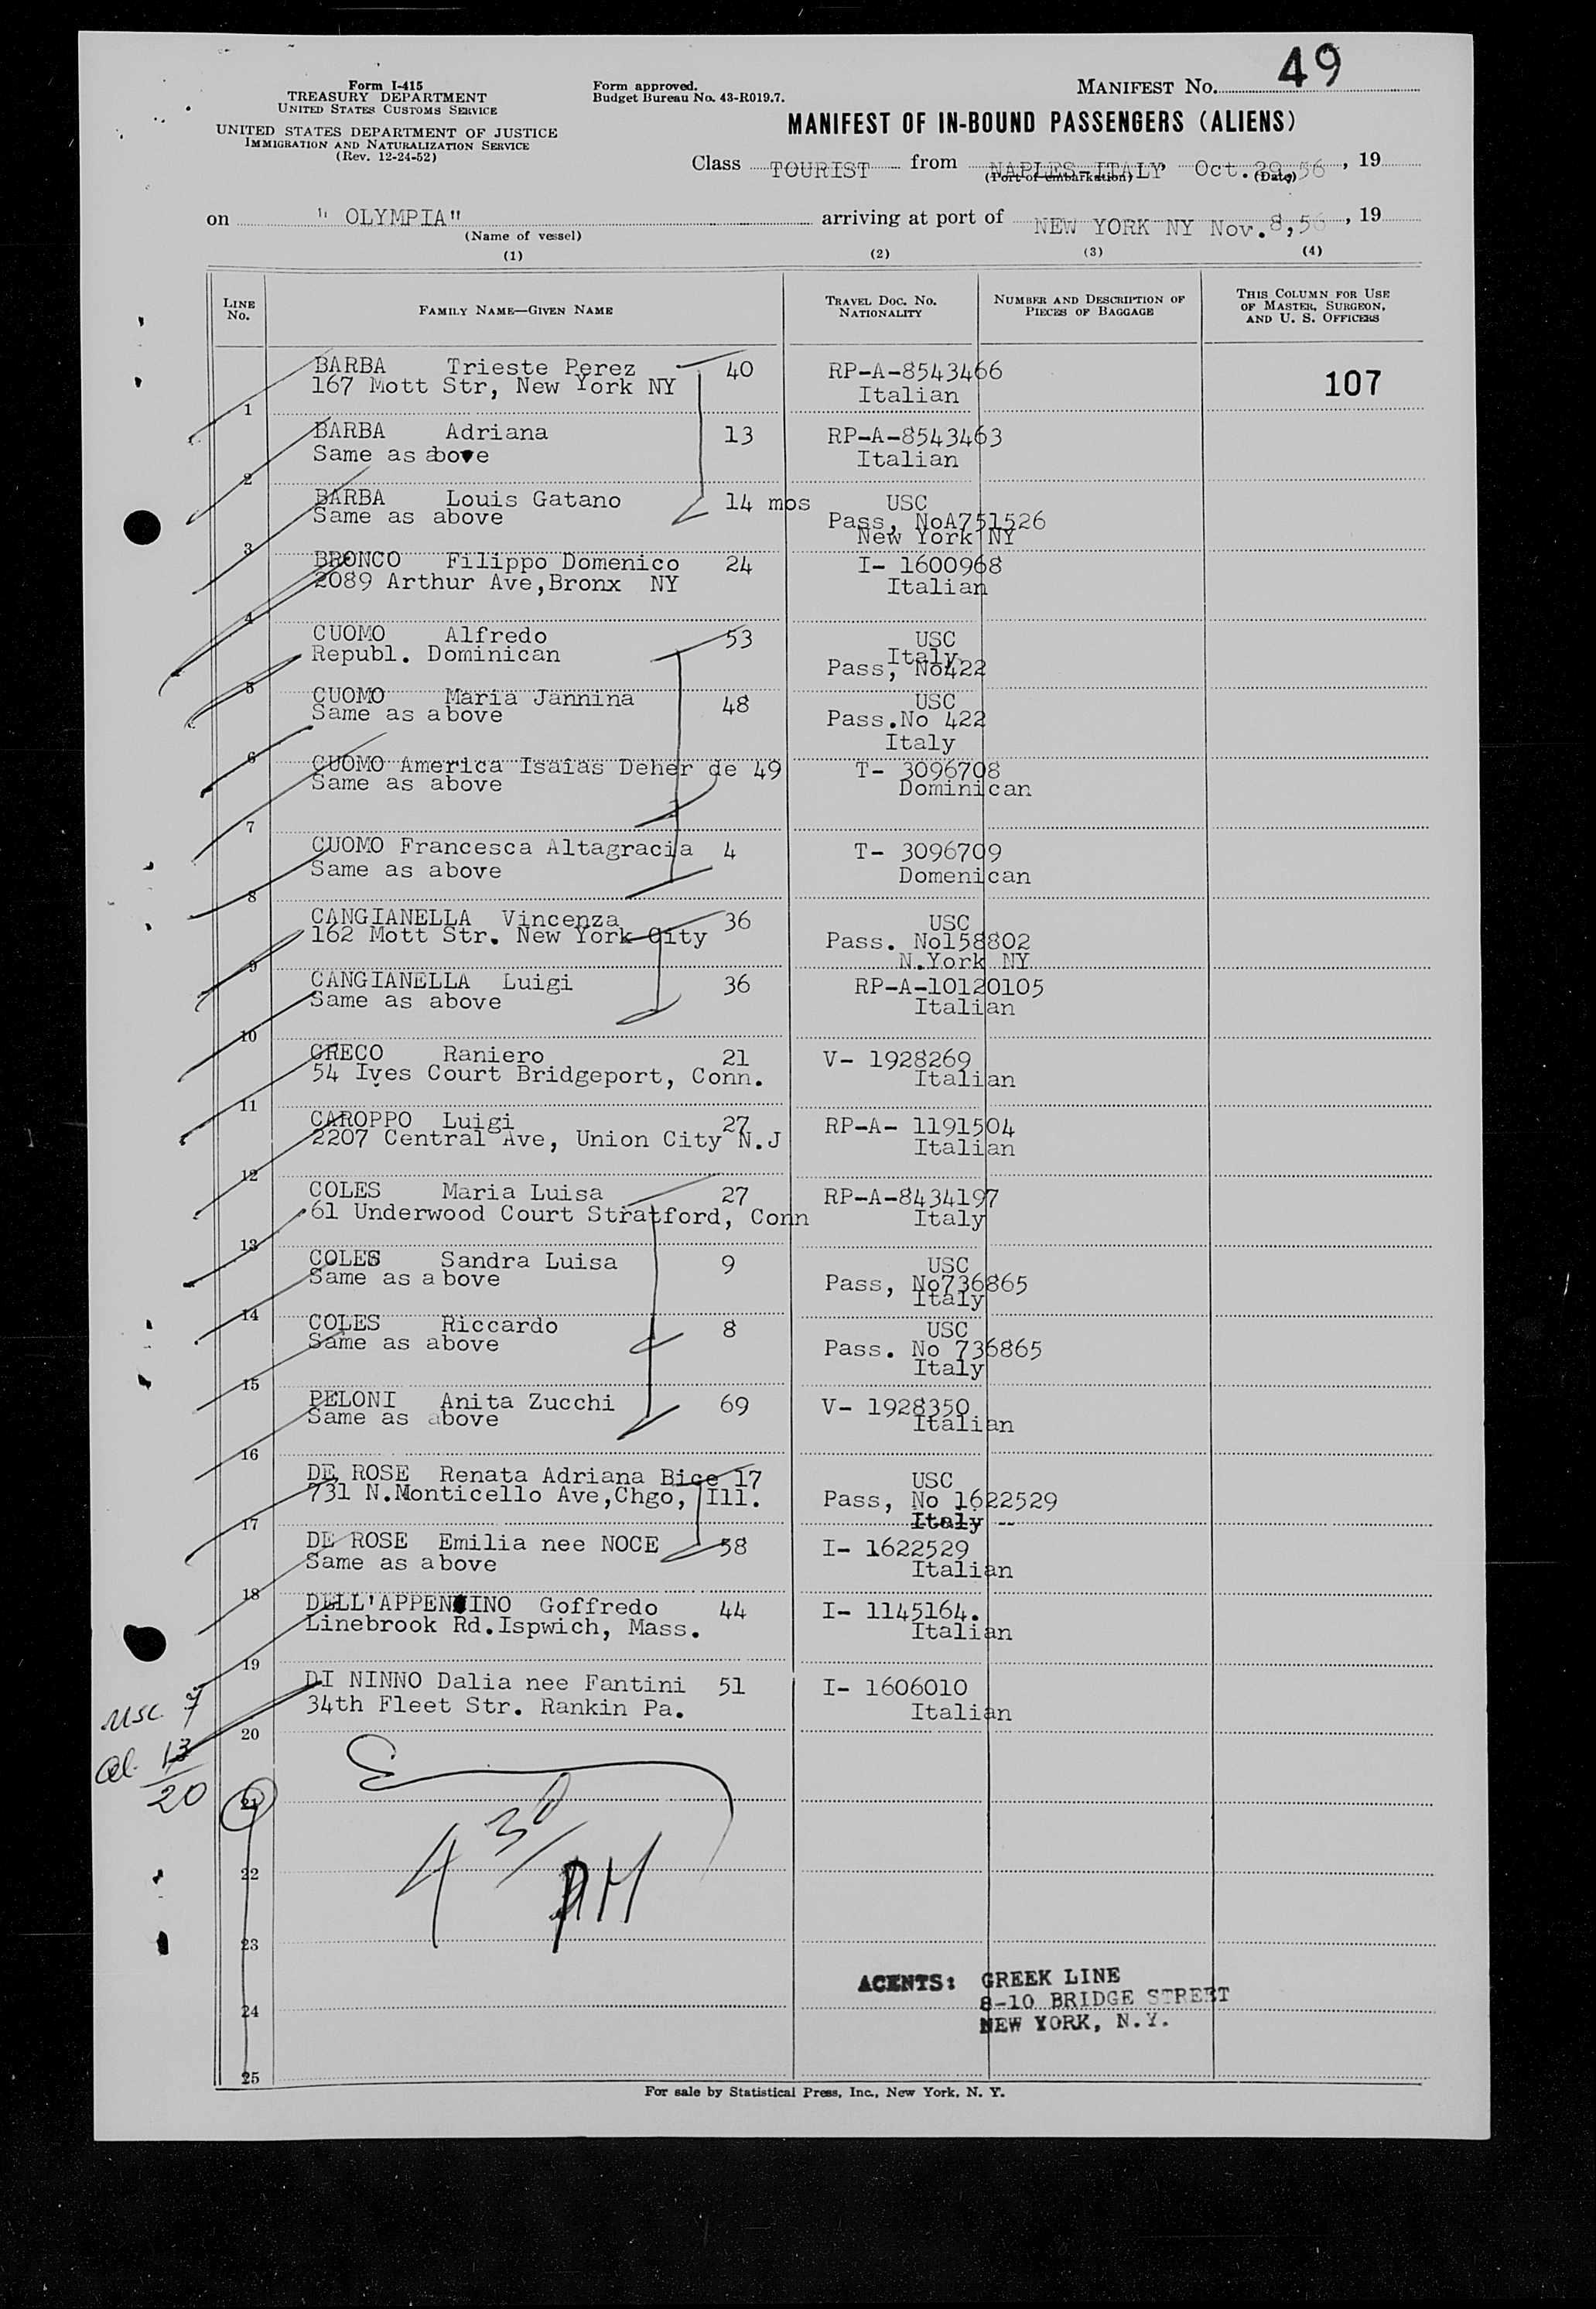 Form I-415
TREASURY DEPARTMENT
UNITED STATES CUSTOMS SERVICE
UNITED STATES DEPARTMENT OF JUSTICE
IMMIGRATION AND NATURALIZATION SERVICE
(Rev. 12-24-52)
Form approved.
Budget Bureau No. 43-R019.7.
MANIFEST No. 49
MANIFEST OF IN-BOUND PASSENGERS (ALIENS)
Class TOURIST from NAPLES-ITALY Oct. 29, 56, 19
(Port of embarkation) (Date)
on " OLYMPIA" arriving at port of NEW YORK NY Nov. 8, 56, 19
(Name of vessel)
(1) (2) (3) (4)
LINE No. FAMILY NAME—GIVEN NAME TRAVEL DOC. NO. NATIONALITY NUMBER AND DESCRIPTION OF PIECES OF BAGGAGE THIS COLUMN FOR USE OF MASTER, SURGEON, AND U. S. OFFICERS
BARBA Trieste Perez 40 RP-A-8543466
167 Mott Str, New York NY Italian 107
1
BARBA Adriana 13 RP-A-8543463
Same as above Italian
2
BARBA Louis Gatano 14 mos USC
Same as above Pass, NoA751526
New York NY
3
BRONCO Filippo Domenico 24 I- 1600968
2089 Arthur Ave,Bronx NY Italian
4
CUOMO Alfredo 53 USC
Republ. Dominican Italy
Pass, No422
5
CUOMO Maria Jannina 48 USC
Same as above Pass.No 422
Italy
6
CUOMO America Isaias Deher de 49 T- 3096708
Same as above Dominican
7
CUOMO Francesca Altagracia 4 T- 3096709
Same as above Domenican
8
CANGIANELLA Vincenza 36 USC
162 Mott Str. New York City Pass. No158802
N.York NY
9
CANGIANELLA Luigi 36 RP-A-10120105
Same as above Italian
10
GRECO Raniero 21 V- 1928269
54 Ives Court Bridgeport, Conn. Italian
11
CAROPPO Luigi 27 RP-A- 1191504
2207 Central Ave, Union City N.J Italian
12
COLES Maria Luisa 27 RP-A-8434197
61 Underwood Court Stratford, Conn Italy
13
COLES Sandra Luisa 9 USC
Same as above Pass, No736865
Italy
14
COLES Riccardo 8 USC
Same as above Pass. No 736865
Italy
15
PELONI Anita Zucchi 69 V- 1928350
Same as above Italian
16
DE ROSE Renata Adriana Bice 17 USC
731 N.Monticello Ave,Chgo, Ill. Pass, No 1622529
Italy --
17
DE ROSE Emilia nee NOCE 58 I- 1622529
Same as above Italian
18
DELL'APPENNINO Goffredo 44 I- 1145164.
Linebrook Rd.Ispwich, Mass. Italian
19
DI NINNO Dalia nee Fantini 51 I- 1606010
34th Fleet Str. Rankin Pa. Italian
20
usc. 7
al. 13
20
21
4 30/ PM
22
23
AGENTS: GREEK LINE
8-10 BRIDGE STREET
24
NEW YORK, N.Y.
25
For sale by Statistical Press, Inc., New York, N. Y.